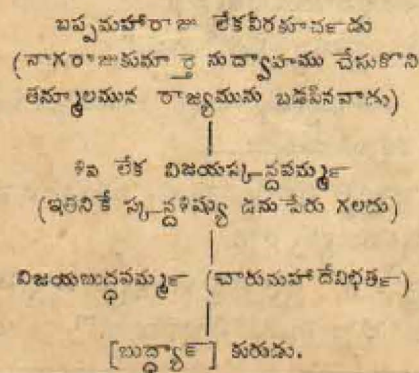 బప్పమహారాజు లేక వీరకూర్చఁడు
(నాగరాజుకుమార్తె నుద్వాహము చేసుకొని
తన్మూలమున రాజ్యమును బడసినవాఁడు)
శివ లేక విజయస్కన్దవమ్మ౯
(ఇతనికే స్కన్దశిష్యు డను పేరు గలదు)
విజయబుద్ధవమ్మ౯ (చారుమహాదేవిభర్త)
[బుద్ధ్యా౯] కురుడు.